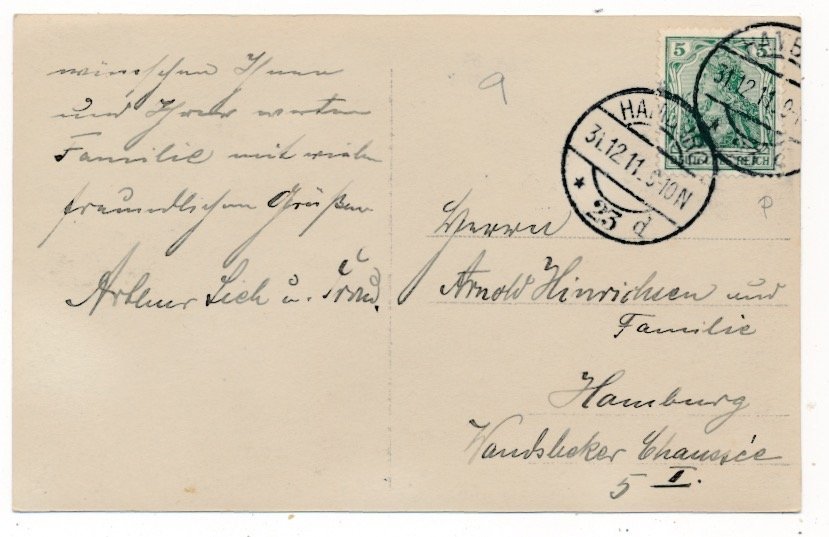 wünschen Ihnen
und Ihrer werten
Familie mit vielen
freundlichen Grüßen
Arthur Lich u. Frau.
9
5 5
REICH
HAMBURG
31.12.11. 9-10N
* 23 d
P
Herrn
Arnold Hinrichsen und
Familie
Hamburg
Wandsbeker Chaussée
5 II.